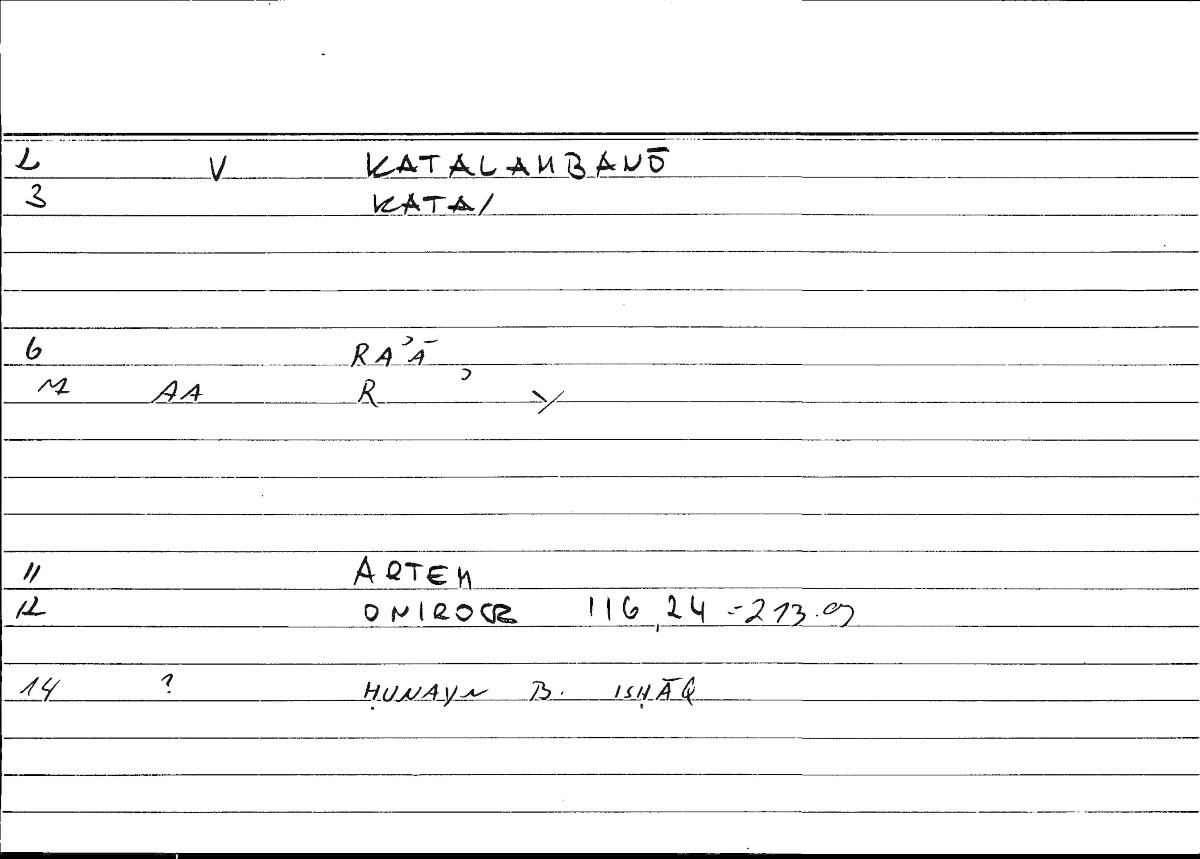 2 V KATALAMBANŌ
3 KATA/
6 RAʾĀ
M AA R ʾ y
11 ARTEM
12 ONIROCR 116,24 = 213.9
14 ? ḤUNAYN B. ISḤĀQ